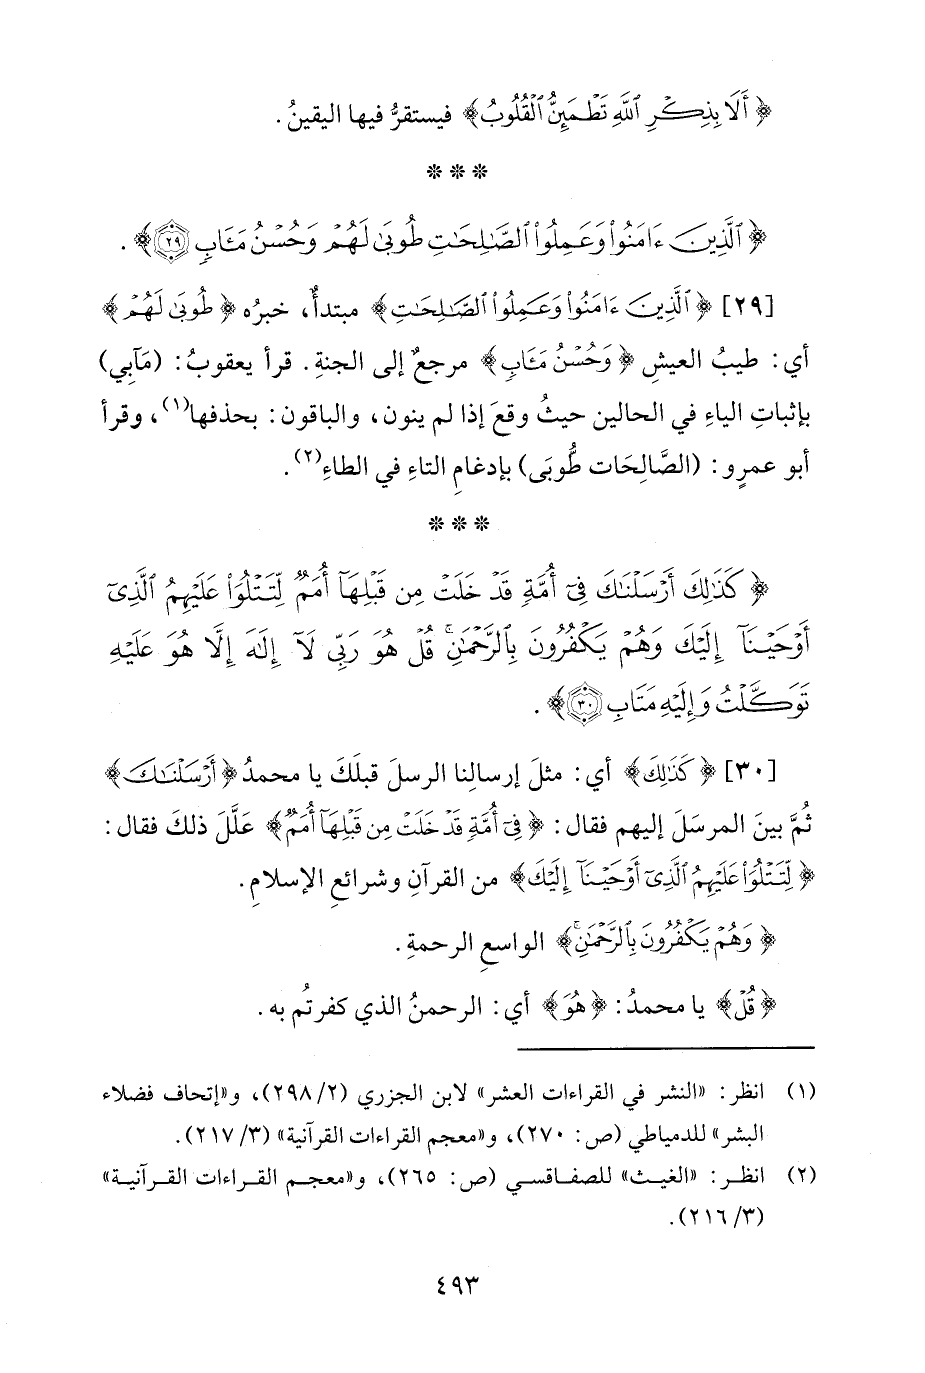 ﴿أَلَا بِذِكْرِ ٱللَّهِ تَطْمَئِنُّ ٱلْقُلُوبُ﴾ فيستقرُّ فيها اليقينُ.
* * *
﴿ٱلَّذِينَ ءَامَنُوا۟ وَعَمِلُوا۟ ٱلصَّـٰلِحَـٰتِ طُوبَىٰ لَهُمْ وَحُسْنُ مَـَٔابٍ ٢٩﴾.
[٢٩] ﴿ٱلَّذِينَ ءَامَنُوا۟ وَعَمِلُوا۟ ٱلصَّـٰلِحَـٰتِ﴾ مبتدأٌ، خبرُه ﴿طُوبَىٰ لَهُمْ﴾
أي: طيبُ العيشِ ﴿وَحُسْنُ مَـَٔابٍ﴾ مرجعٌ إلى الجنةِ. قرأ يعقوبُ: (مَآبِي)
بإثباتِ الياءِ في الحالين حيثُ وقعَ إذا لم ينون، والباقون: بحذفها(١)، وقرأ
أبو عمرٍو: (الصَّالِحَات طُّوبَى) بإدغامِ التاءِ في الطاءِ(٢).
* * *
﴿كَذَٰلِكَ أَرْسَلْنَـٰكَ فِىٓ أُمَّةٍ قَدْ خَلَتْ مِن قَبْلِهَآ أُمَمٌ لِّتَتْلُوَا۟ عَلَيْهِمُ ٱلَّذِىٓ
أَوْحَيْنَآ إِلَيْكَ وَهُمْ يَكْفُرُونَ بِٱلرَّحْمَـٰنِ ۚ قُلْ هُوَ رَبِّى لَآ إِلَـٰهَ إِلَّا هُوَ عَلَيْهِ
تَوَكَّلْتُ وَإِلَيْهِ مَتَابِ ٣٠﴾.
[٣٠] ﴿كَذَٰلِكَ﴾ أي: مثلَ إرسالِنا الرسلَ قبلَكَ يا محمدُ ﴿أَرْسَلْنَـٰكَ﴾
ثُمَّ بينَ المرسَلَ إليهم فقال: ﴿فِىٓ أُمَّةٍ قَدْ خَلَتْ مِن قَبْلِهَآ أُمَمٌ﴾ علَّلَ ذلكَ فقال:
﴿لِّتَتْلُوَا۟ عَلَيْهِمُ ٱلَّذِىٓ أَوْحَيْنَآ إِلَيْكَ﴾ من القرآنِ وشرائعِ الإسلامِ.
﴿وَهُمْ يَكْفُرُونَ بِٱلرَّحْمَـٰنِ ۚ﴾ الواسعِ الرحمةِ.
﴿قُلْ﴾ يا محمدُ: ﴿هُوَ﴾ أي: الرحمنُ الذي كفرتُم به.
(١) انظر: «النشر في القراءات العشر» لابن الجزري (٢/ ٢٩٨)، و«إتحاف فضلاء
البشر» للدمياطي (ص: ٢٧٠)، و«معجم القراءات القرآنية» (٣/ ٢١٧).
(٢) انظر: «الغيث» للصفاقسي (ص: ٢٦٥)، و«معجم القراءات القرآنية»
(٣/ ٢١٦).
٤٩٣